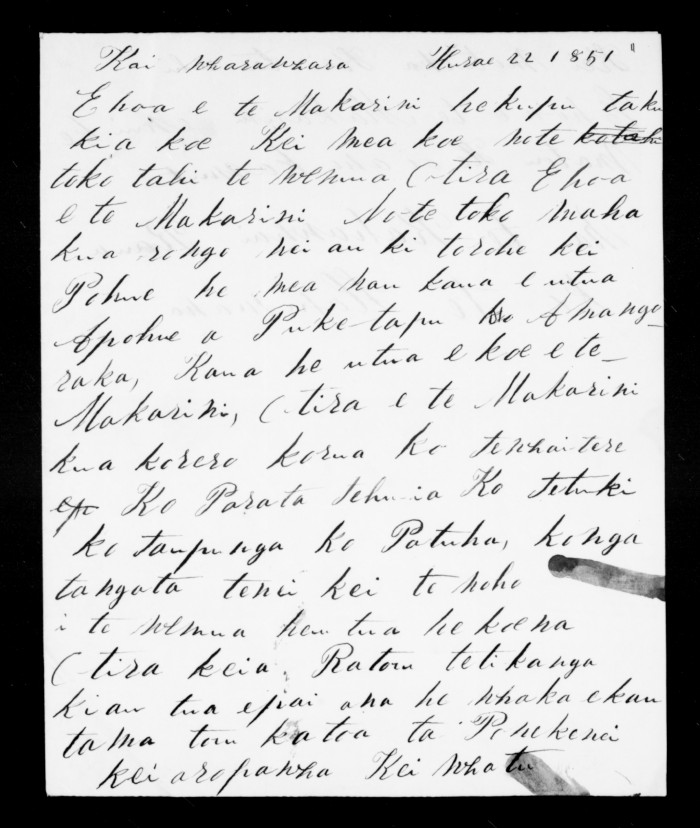 Kai wharawhara Hurae 22 1851"
Ehoa e te Makarini hekupu taku
kia koe Kei mea koe note
toko tahi te wenua Otira Ehoa
e te Makarini Note toko maha
kua rongo nei au ki torohe kei
Pohue he mea nau kaua e utua
Apohue a Puke-tapu Ko Amango-
raka, Kaua he utua e koe e te-
Makarini, Otira e te Makarini
kua korero korua ko tewhaitere
Ko Parata Ko tetuki
ko taupunga ko Patuha, konga
tangata tenei kei te noho
i te wenua hau tua he koena
Otira keia Ratou tetikanga
kiau tua epai ana he whaka ekau
tama tou katoa ta Ponekenei
kei aropawha Kei Whatu